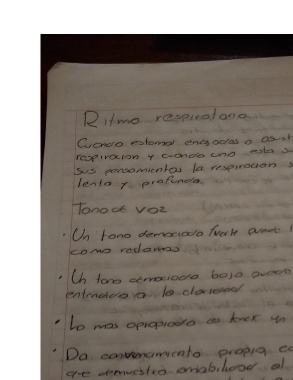 Ritmo respiratorio
Cuando estamos enojados o
respiracion y cuando uno esta
sus pensamientos la respiracion
lenta y profunda.
Tono de voz
• Un tono demaciado fuerte puede
como reclamos
• Un tono demaciado bajo
a la claridad
• Lo mas apropiado es tener un
• Da convencimiento propio
que demuestra amabilidad al